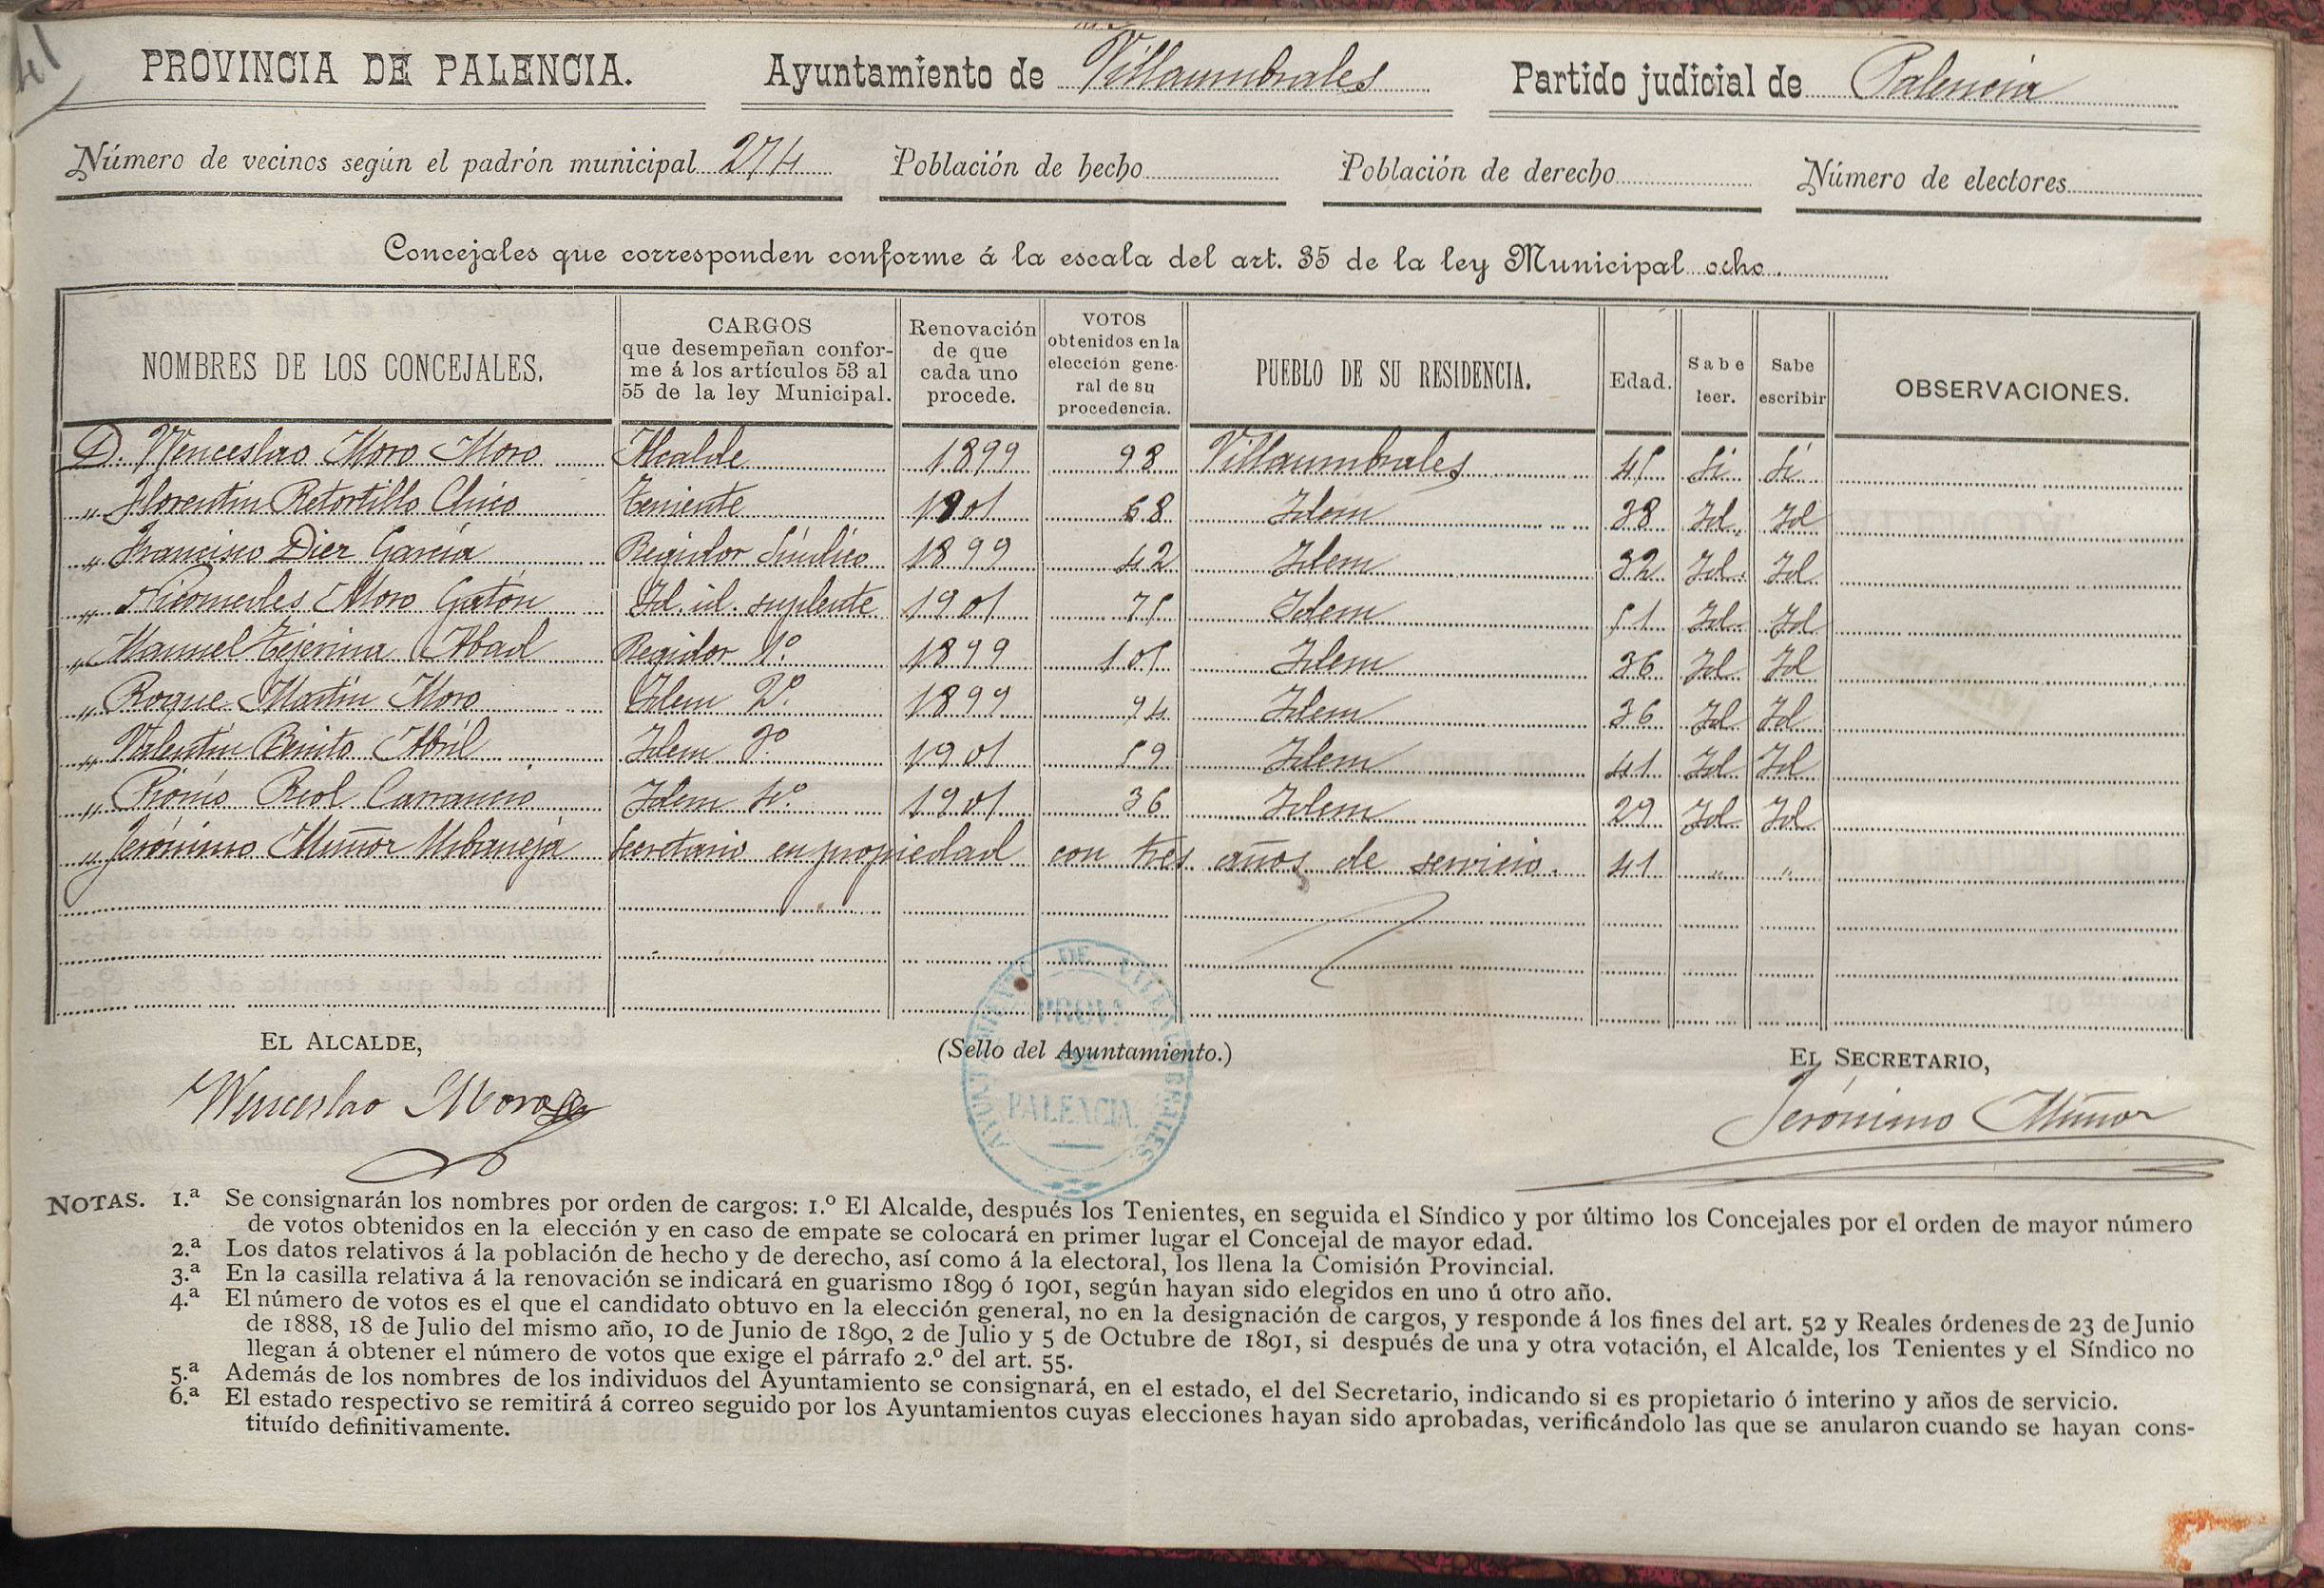 41
PROVINCIA DE PALENCIA. Ayuntamiento de Villaumbrales Partido judicial de Palencia
Número de vecinos según el padrón municipal 274 Población de hecho Población de derecho Número de electores
Concejales que corresponden conforme á la escala del art. 35 de la ley Municipal ocho.
NOMBRES DE LOS CONCEJALES. CARGOS que desempeñan confor- me á los artículos 53 al 55 de la ley Municipal. Renovación de que cada uno procede. VOTOS obtenidos en la elección gene- ral de su procedencia. PUEBLO DE SU RESIDENCIA. Edad. Sabe leer. Sabe escribir OBSERVACIONES.
D. Wenceslao Moro Moro Alcalde 1899 98 Villaumbrales 45 Si Si
" Florentin Retortillo Chico Teniente 1901 68 Idem 38 Id. Id
" Francisco Diez Garcia Regidor Síndico 1899 42 Idem 32 Id. Id.
" Nicomedes Moro Gatón Id. id. suplente 1901 75 Idem 51 Id. Id
" Manuel Tejerina Abad Regidor 1º. 1899 105 Idem 36 Id. Id
" Roque Martin Moro Idem 2º. 1899 94 Idem 36 Id Id
" Valentín Benito Abril Idem 3º 1901 59 Idem 41 Id. Id
" Reol Carrancio Idem 4º. 1901 36 Idem 29 Id Id
" Jerónimo Muñoz Urbaneja Secretario en propiedad con tres años de servicio. 41 " "
EL ALCALDE, (Sello del Ayuntamiento.) EL SECRETARIO,
Wenceslao Moro Jerónimo Muñoz
AYUNTAMIENTO DE VILLAUMBRALES
PROV.
DE
PALENCIA.
NOTAS. 1.ª Se consignarán los nombres por orden de cargos: 1.º El Alcalde, después los Tenientes, en seguida el Síndico y por último los Concejales por el orden de mayor número
de votos obtenidos en la elección y en caso de empate se colocará en primer lugar el Concejal de mayor edad.
2.ª Los datos relativos á la población de hecho y de derecho, así como á la electoral, los llena la Comisión Provincial.
3.ª En la casilla relativa á la renovación se indicará en guarismo 1899 ó 1901, según hayan sido elegidos en uno ú otro año.
4.ª El número de votos es el que el candidato obtuvo en la elección general, no en la designación de cargos, y responde á los fines del art. 52 y Reales órdenes de 23 de Junio
de 1888, 18 de Julio del mismo año, 10 de Junio de 1890, 2 de Julio y 5 de Octubre de 1891, si después de una y otra votación, el Alcalde, los Tenientes y el Síndico no
llegan á obtener el número de votos que exige el párrafo 2.º del art. 55.
5.ª Además de los nombres de los individuos del Ayuntamiento se consignará, en el estado, el del Secretario, indicando si es propietario ó interino y años de servicio.
6.ª El estado respectivo se remitirá á correo seguido por los Ayuntamientos cuyas elecciones hayan sido aprobadas, verificándolo las que se anularon cuando se hayan cons-
tituído definitivamente.